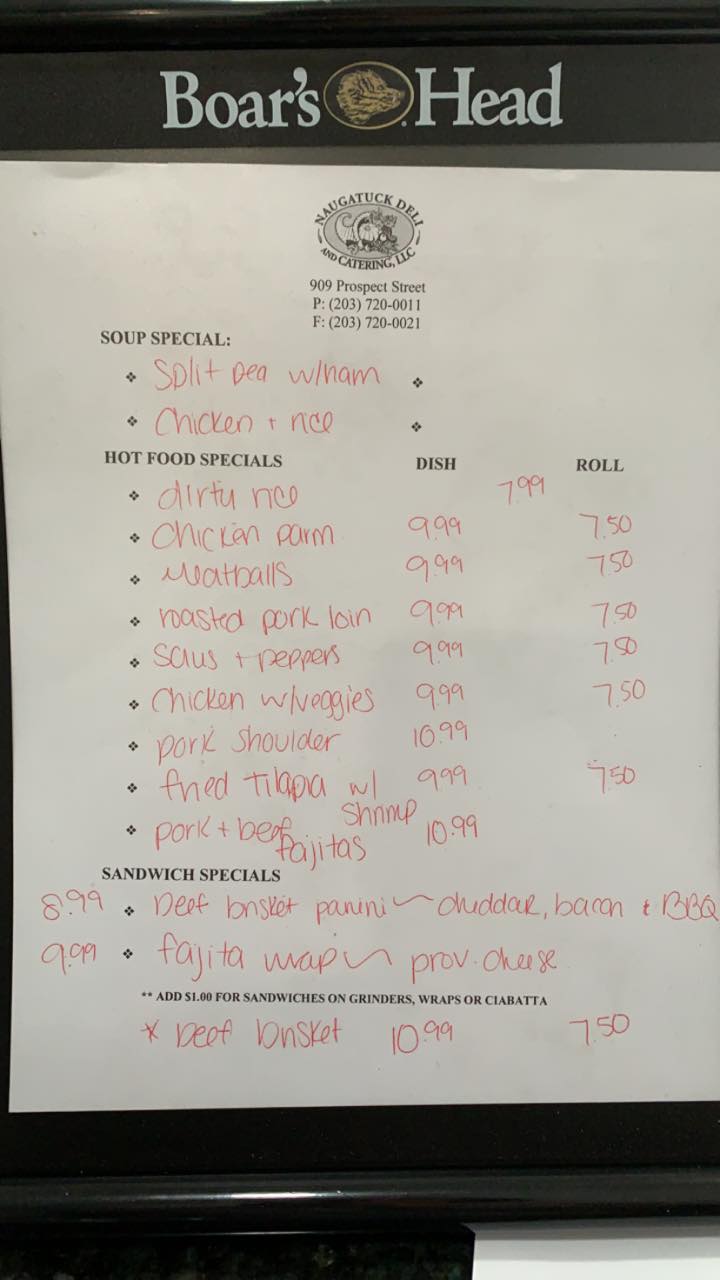 Boar's Head
NAUGATUCK DELI
AND CATERING, LLC
909 Prospect Street
P: (203) 720-0011
F: (203) 720-0021
SOUP SPECIAL:
❖ Split pea w/ham ❖
❖ Chicken + rice ❖
HOT FOOD SPECIALS DISH ROLL
❖ dirty rice 7.99
❖ Chicken parm 9.99 7.50
❖ Meatballs 9.99 7.50
❖ roasted pork loin 9.99 7.50
❖ saus + peppers 9.99 7.50
❖ Chicken w/veggies 9.99 7.50
❖ pork shoulder 10.99
❖ fried Tilapia w/ 9.99 7.50
shrimp
❖ pork + beef 10.99
fajitas
SANDWICH SPECIALS
8.99 ❖ Beef brisket panini ~ cheddar, bacon & BBQ
9.99 ❖ fajita wrap ~ prov. cheese
** ADD $1.00 FOR SANDWICHES ON GRINDERS, WRAPS OR CIABATTA
* Beef brisket 10.99 7.50